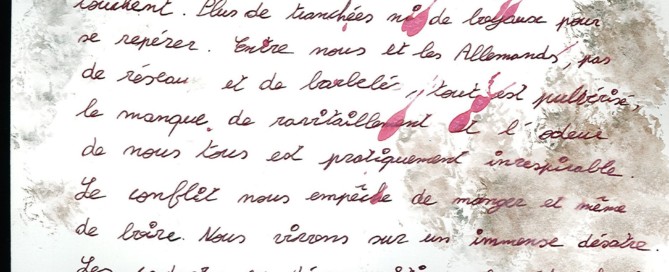 touchent. Plus de tranchées ni de boyaux pour
se repérer. Entre nous et les Allemands, pas
de réseau et de barbelés, tout est pulvérisé,
le manque de ravitaillement et l'odeur
de nous tous est pratiquement irrespirable.
Le conflit nous empêche de manger et même
de boire. Nous vivons sur un immense désastre.
Les